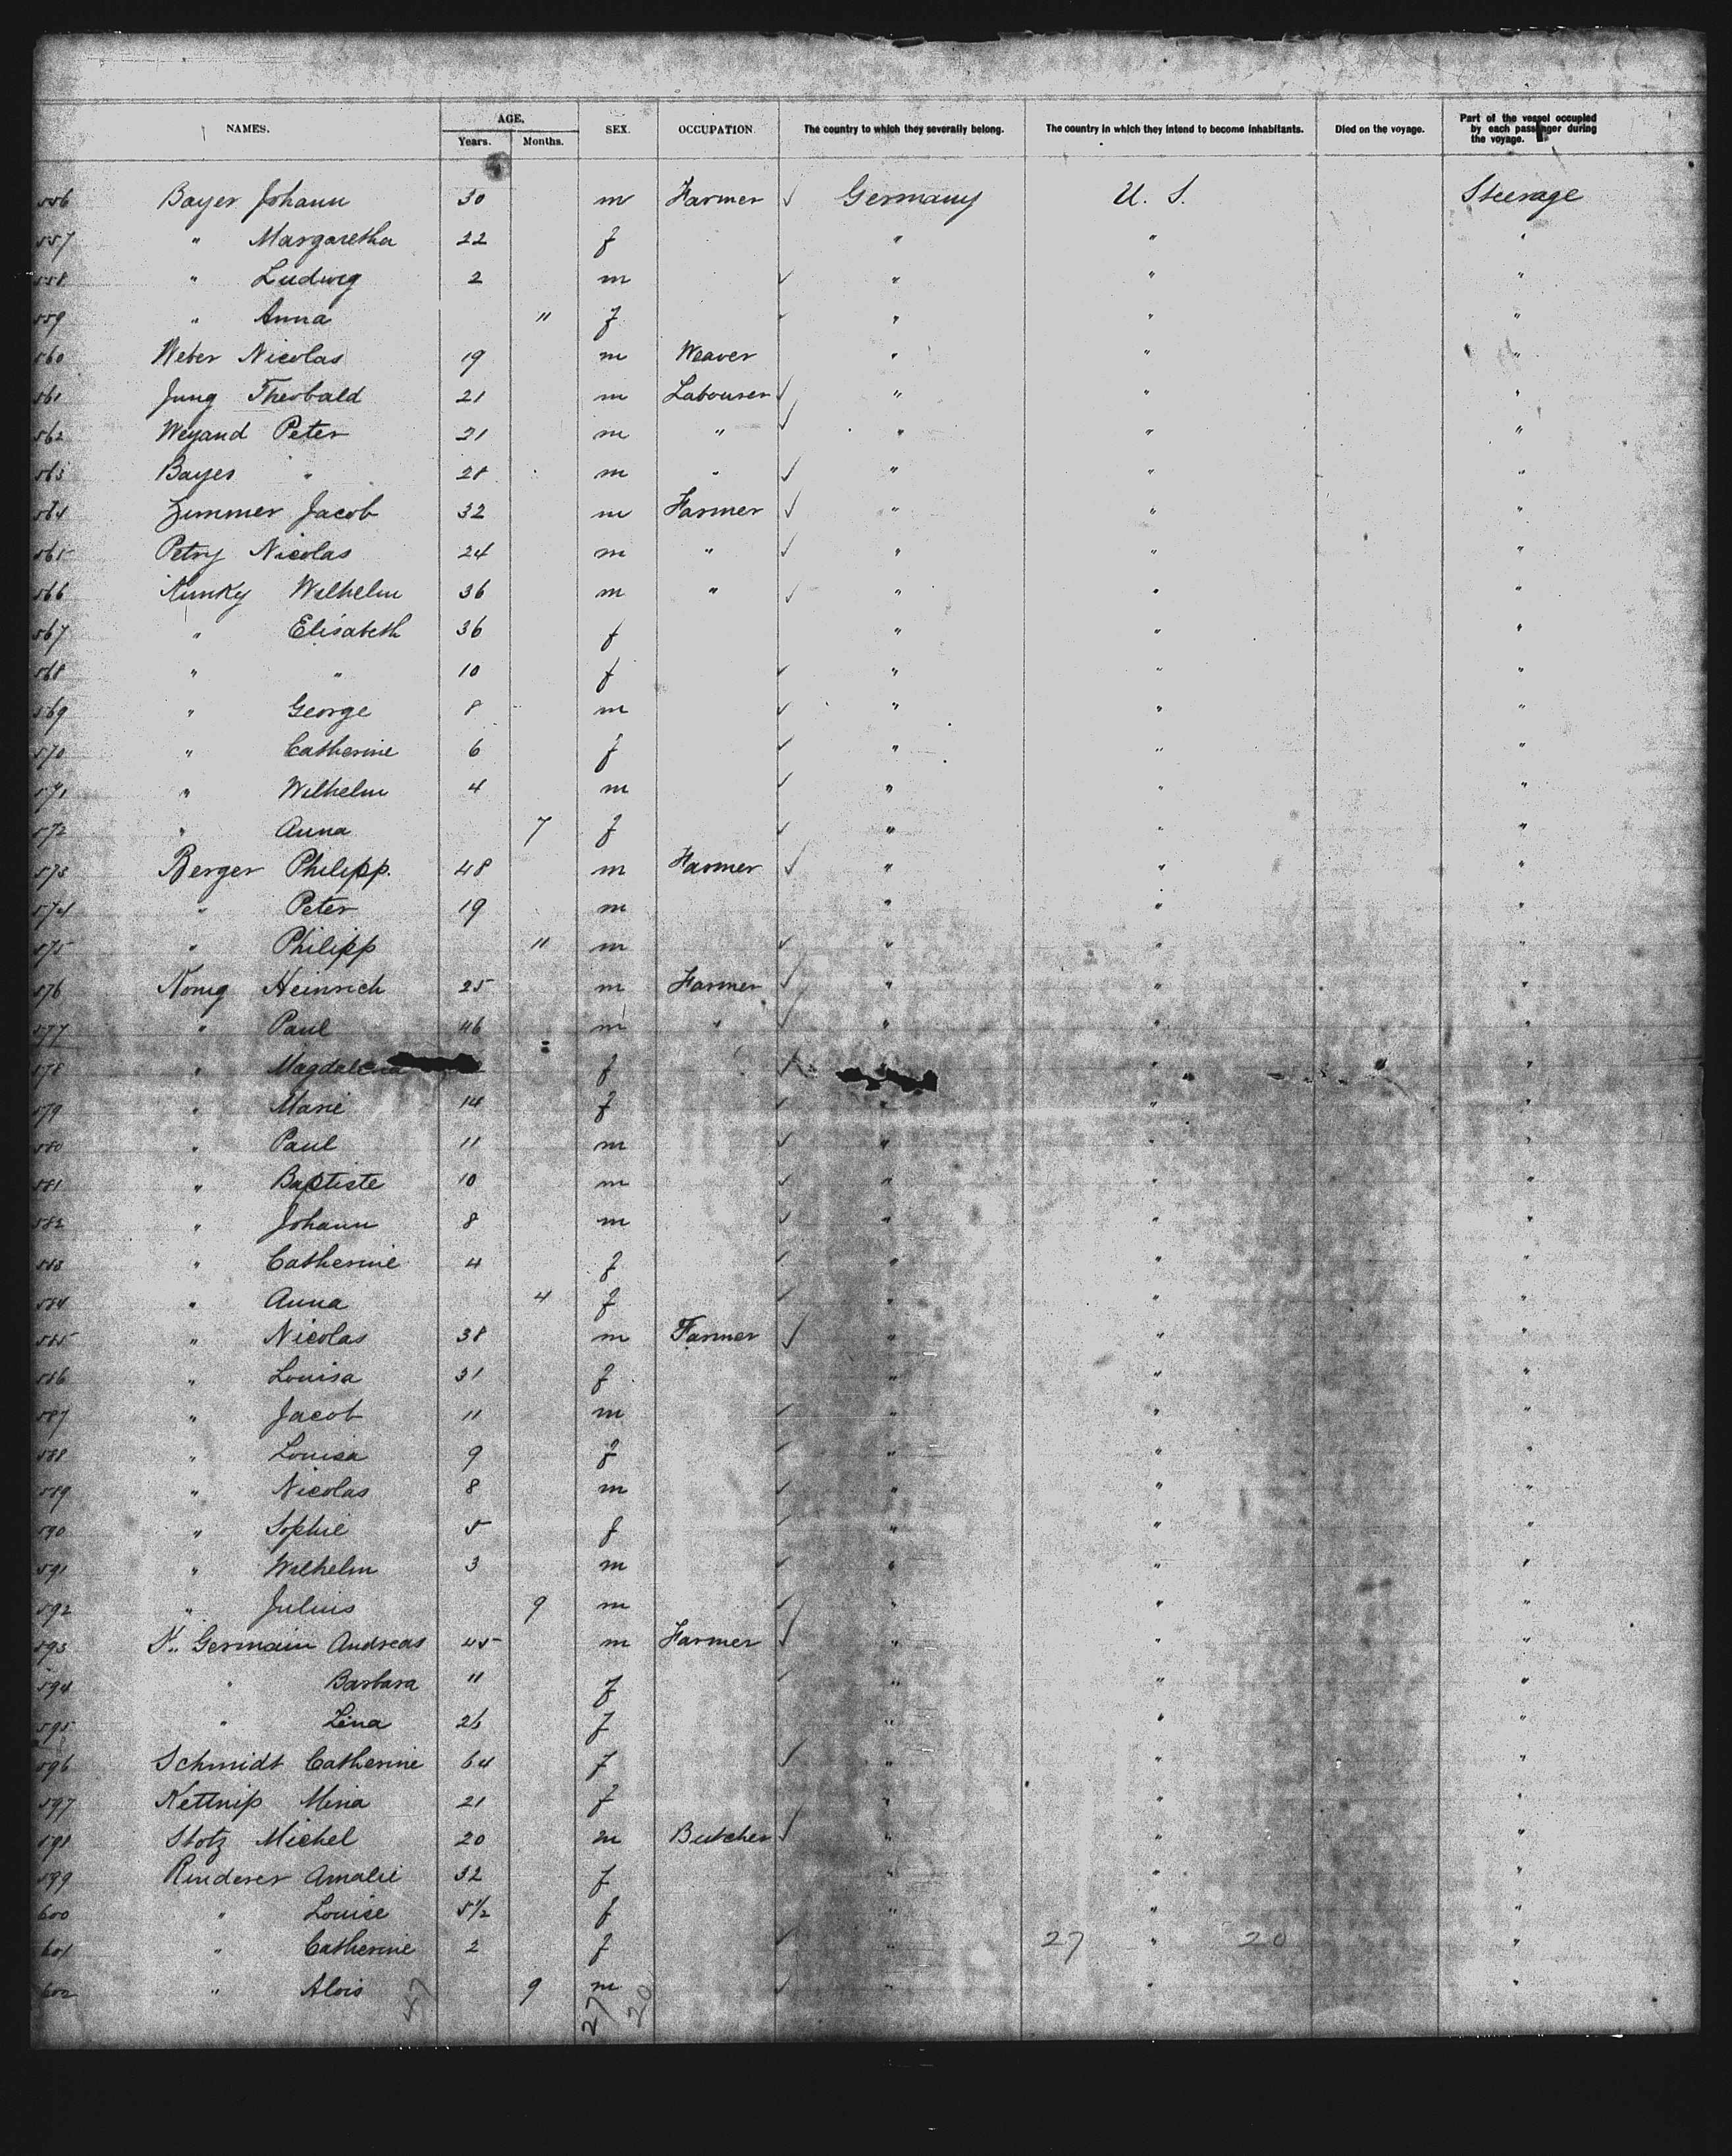 NAMES. AGE. Years. Months. SEX. OCCUPATION. The country to which they severally belong. The country in which they intend to become inhabitants. Died on the voyage. Part of the vessel occupied by each passenger during the voyage.
556 Bayer Johann 30 m Farmer ✓ Germany U. S. Steerage
557 " Margaretha 22 f " " "
558 " Ludwig 2 m ✓ " " "
559 " Anna 11 f ✓ " " "
560 Weber Nicolas 19 m Weaver " " "
561 Jung Theobald 21 m Labourer ✓ " " "
562 Weyand Peter 21 m " ✓ " " "
563 Bayer " 28 m " ✓ " " "
564 Zimmer Jacob 32 m Farmer ✓ " " "
565 Petry Nicolas 24 m " ✓ " " "
566 Kunky Wilhelm 36 m " ✓ " " "
567 " Elisabeth 36 f " " "
568 " " 10 f ✓ " " "
569 " George 8 m ✓ " " "
570 " Catherine 6 f ✓ " " "
571 " Wilhelm 4 m ✓ " " "
572 " Anna 7 f ✓ " " "
573 Berger Philipp. 48 m Farmer ✓ " " "
574 " Peter 19 m " " "
575 " Philipp 11 m ✓ " " "
576 Konig Heinrich 25 m Farmer ✓ " " "
577 " Paul 46 m " ✓ " " "
578 " Magdalena f ✓ " "
579 " Marie 14 f ✓ " " "
580 " Paul 11 m ✓ " " "
581 " Baptiste 10 m ✓ " " "
582 " Johann 8 m ✓ " " "
583 " Catherine 4 f ✓ " " "
584 " Anna 4 f ✓ " " "
585 " Nicolas 38 m Farmer ✓ " " "
586 " Louisa 31 f " " "
587 " Jacob 11 m ✓ " " "
588 " Louisa 9 f ✓ " " "
589 " Nicolas 8 m ✓ " " "
590 " Sophie 5 f ✓ " " "
591 " Wilhelm 3 m ✓ " " "
592 " Julius 9 m ✓ " " "
593 Germain Andreas 45 m Farmer ✓ " " "
594 " Barbara 11 f ✓ " " "
595 " Lina 26 f " " "
596 Schmidt Catherine 64 f ✓ " " "
597 Kettnip Mina 21 f " " "
598 Stotz Michel 20 m Butcher ✓ " " "
599 Rinderer Amalie 32 f " " "
600 " Louise 5½ f " " "
601 " Catherine 2 f ✓ " 27 " 20 "
602 " Alois 9 m ✓ " " "
47 27 20